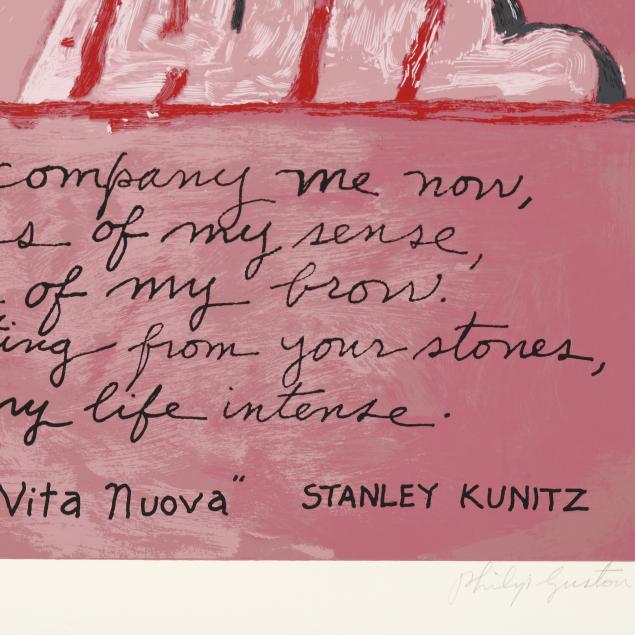 company me now,
s of my sense,
of my brow.
ting from your stones,
my life intense.
Vita Nuova" STANLEY KUNITZ
Philip Guston